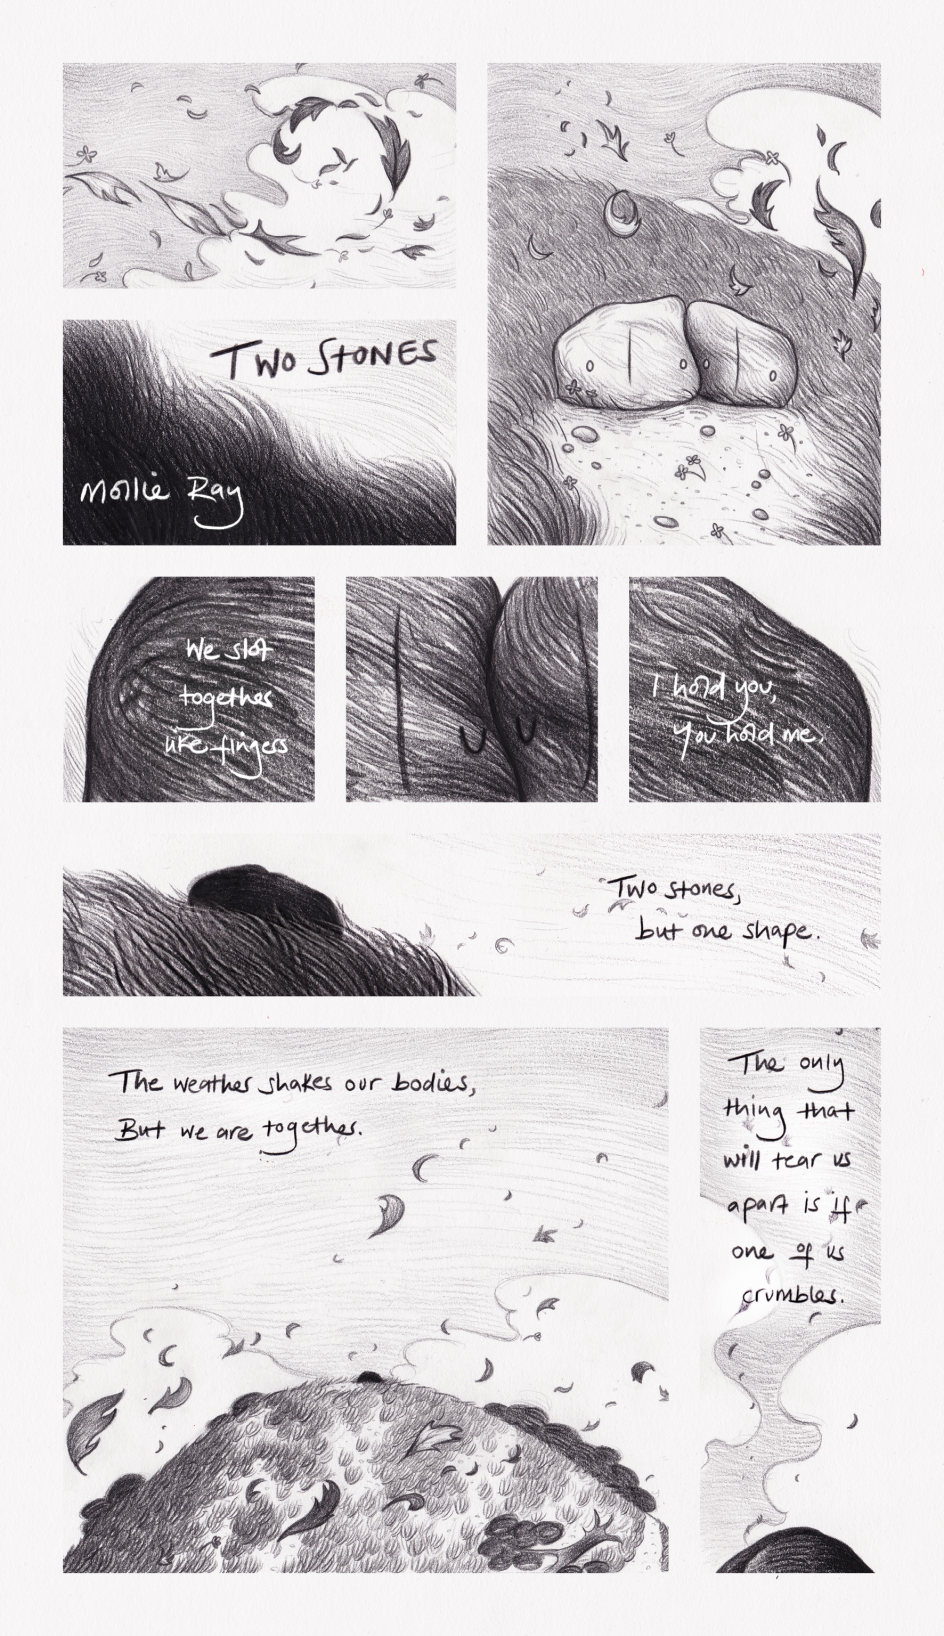 Two Stones
Mollie Ray
We slot
together
like fingers
I hold you,
You hold me.
Two stones,
but one shape.
The weather shakes our bodies,
But we are together.
The only
thing that
will tear us
apart is if
one of us
crumbles.